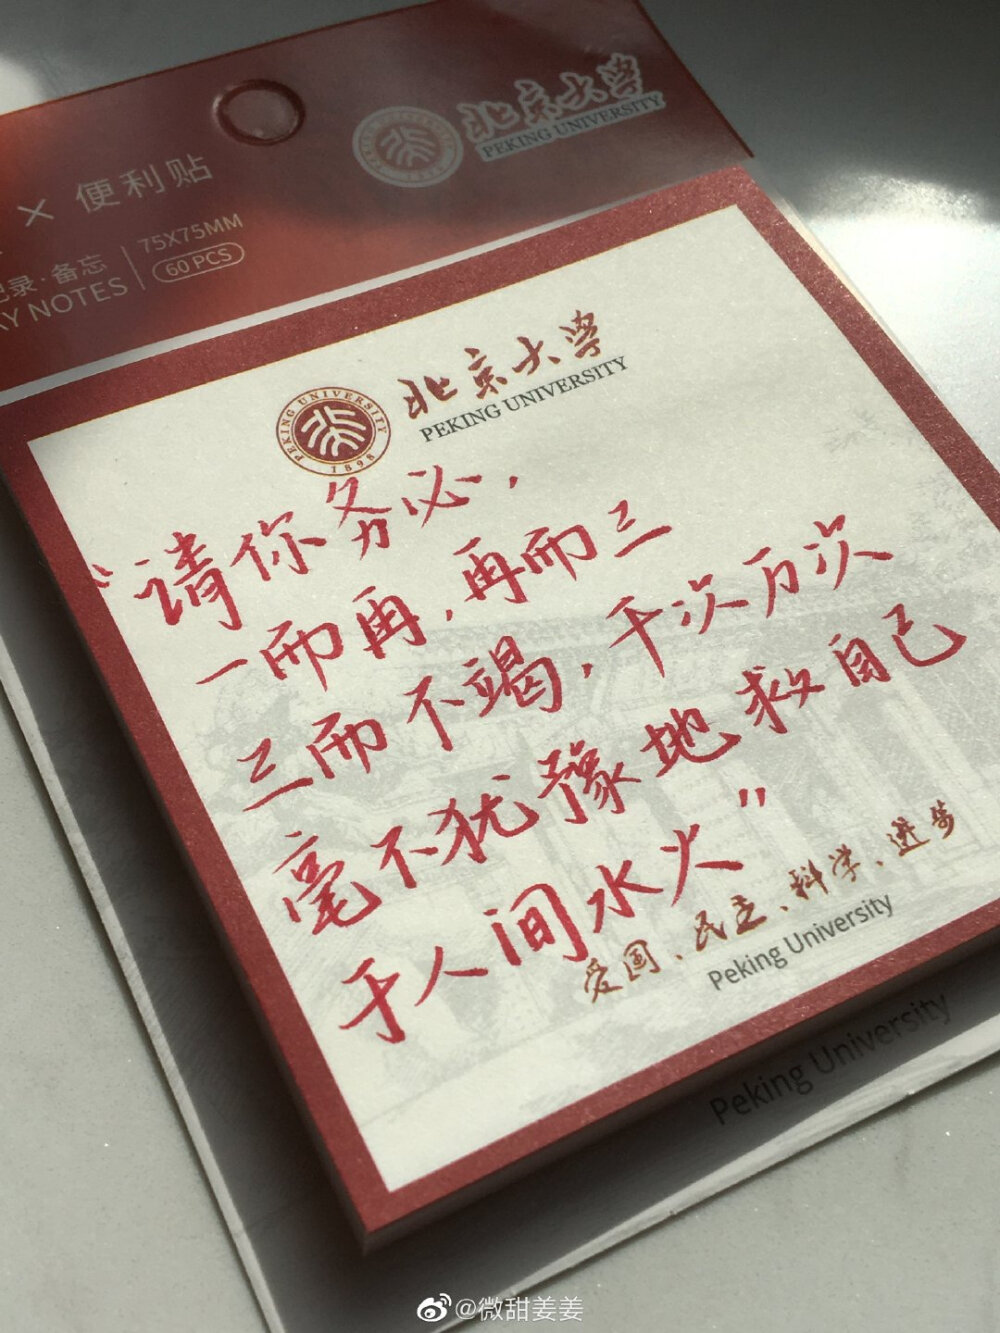 北京大学
PEKING UNIVERSITY
× 便利贴
记录·备忘
AY NOTES
75X75MM
60 PCS
北京大学
PEKING UNIVERSITY
PEKING UNIVERSITY
1898
“请你务必，
一而再，再而三
三而不竭，千次万次
毫不犹豫地救自己
于人间水火”
爱国、民主、科学、进步
Peking University
Peking University
@微甜姜姜